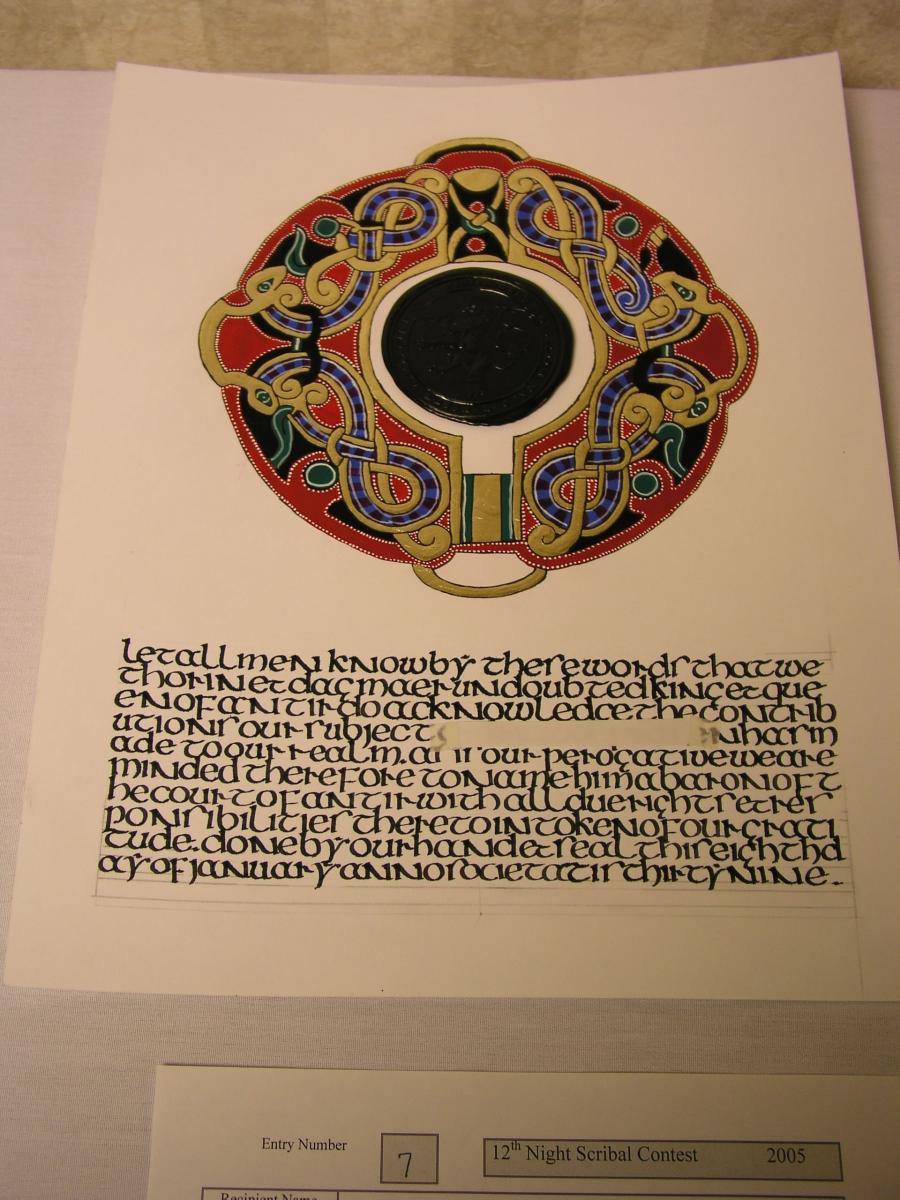 let all men know by these words that we
thorin et dagmaer undoubted king et que
en of an tir do acknowledge the contrib
utions our subject has m
ade to our realm. as is our perogative we are
minded therefore to name him a baron of t
he court of an tir with all due rights et res
ponsibilities thereto in token of our grati
tude. done by our hand et seal this eighth d
ay of january anno societatis thirty nine.
Entry Number 7 12th Night Scribal Contest 2005
Recipient Name